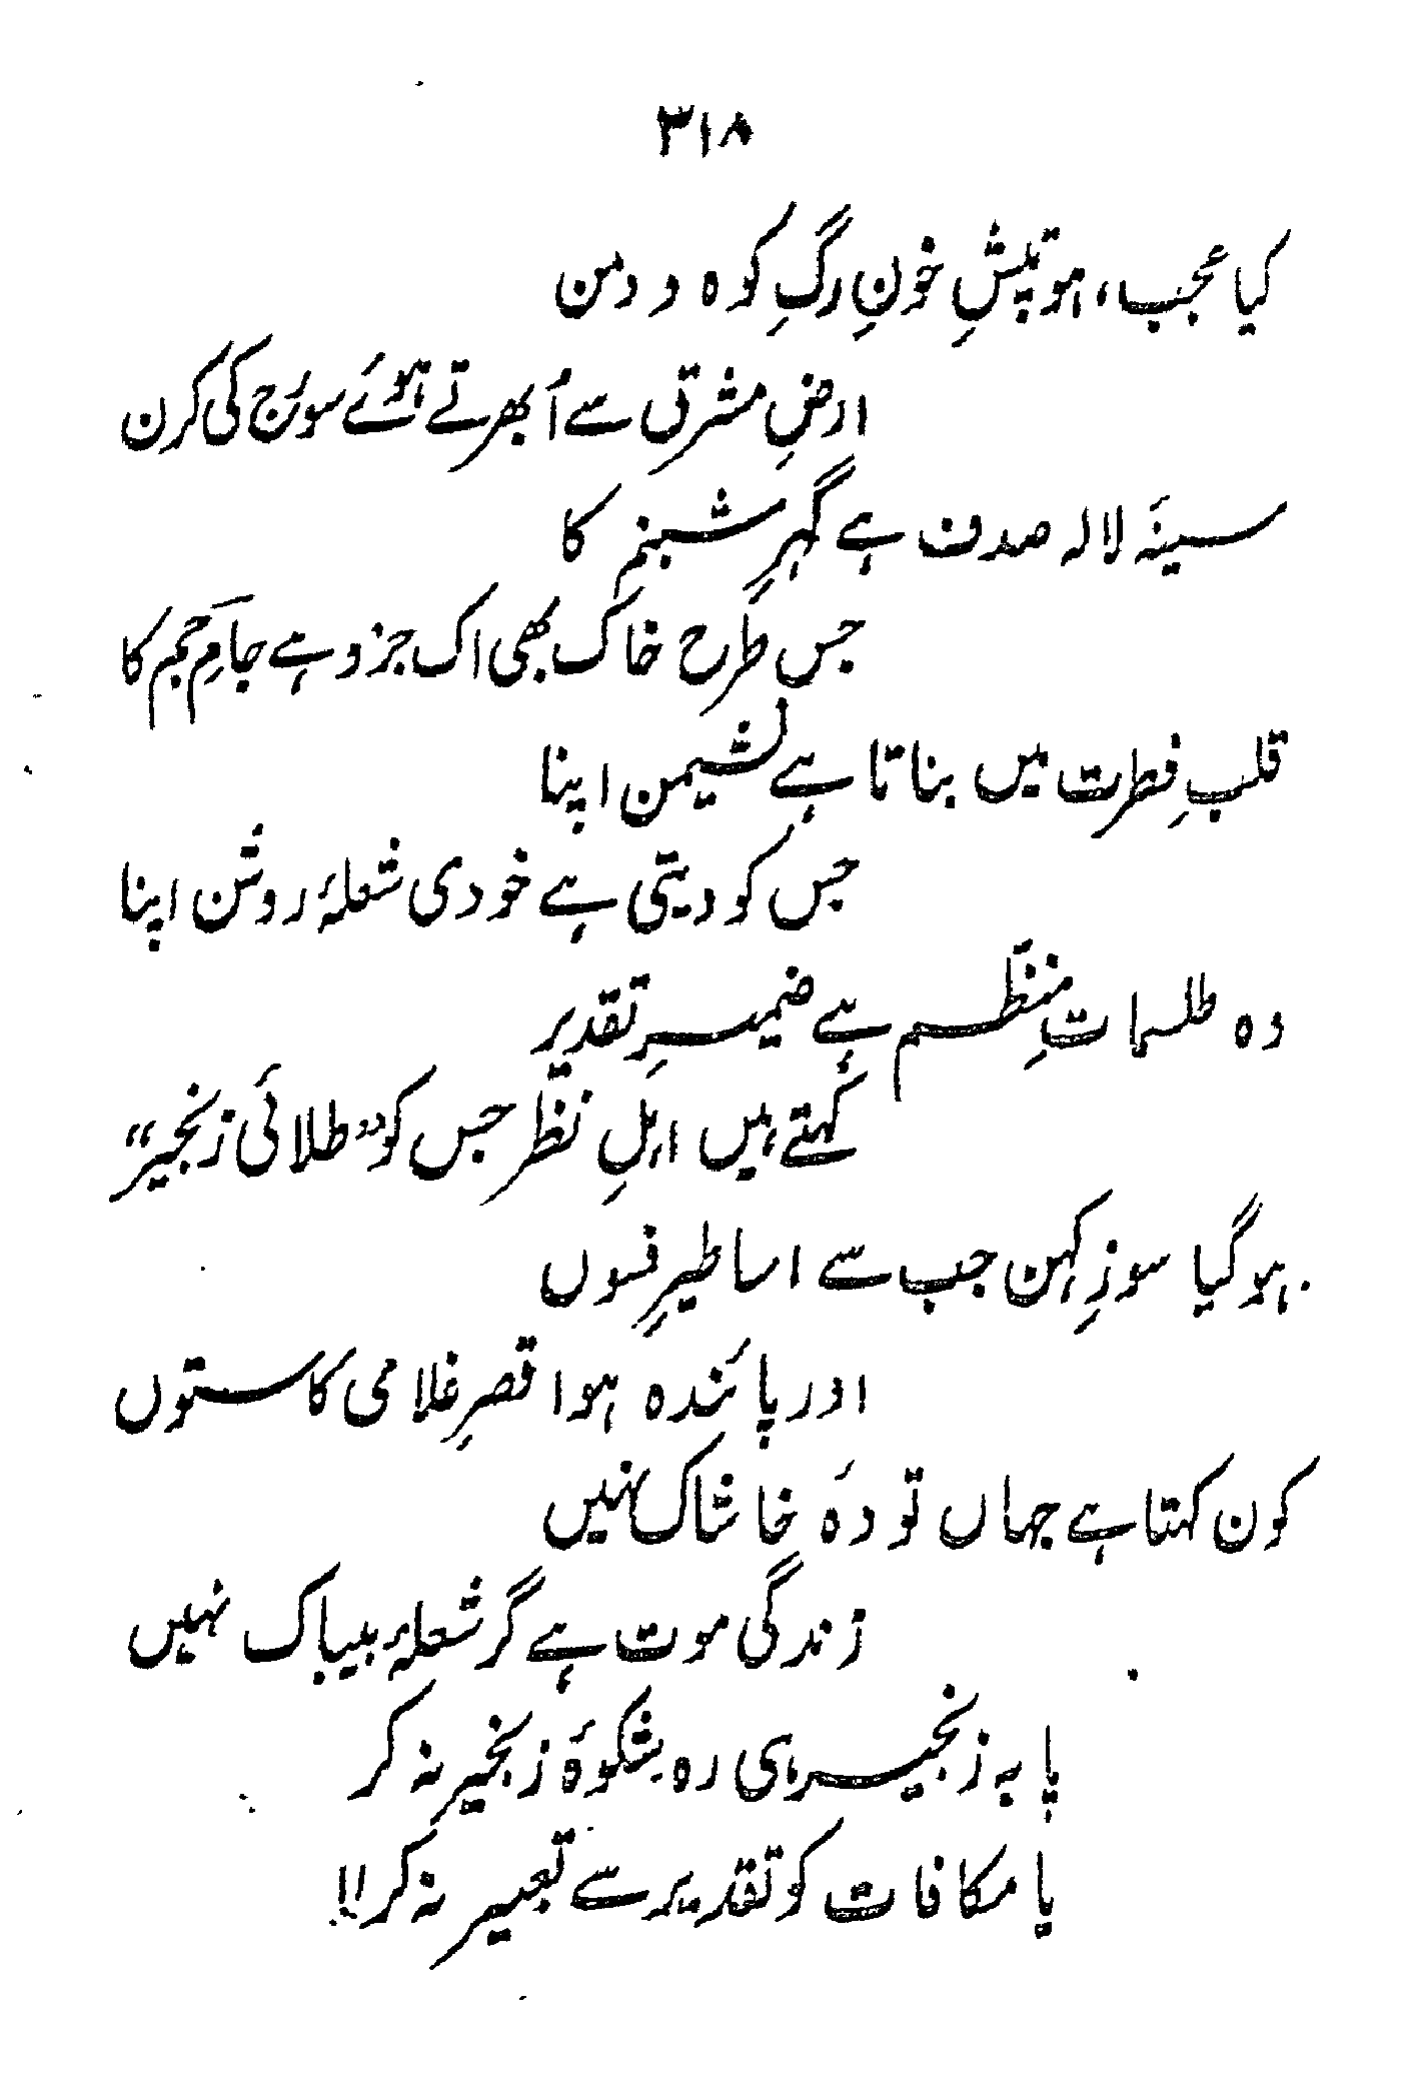 ۳۱۸
کیا عجب، ہو تپشِ خونِ رگِ کوہ و دمن
ارضِ مشرق سے اُبھرتے ہوئے سورج کی کرن
سینۂ لالہ صدف ہے گہرِ شبنم کا
جس طرح خاک بھی اک جزو ہے جامِ جم کا
قلبِ فطرت میں بناتا ہے نشیمن اپنا
جس کو دیتی ہے خودی شعلۂ روشن اپنا
وہ طلسماتِ منظّم ہے ضمیرِ تقدیر
کہتے ہیں اہلِ نظر جس کو "طلائی زنجیر"
ہو گیا سوزِ کہن جب سے اساطیرِ فسوں
اور پائندہ ہوا قصرِ غلامی کا ستوں
کون کہتا ہے جہاں تودۂ خاشاک نہیں
زندگی موت ہے گر شعلۂ بیباک نہیں
پا بہ زنجیر ہی رہ شکوۂ زنجیر نہ کر
یا مکافات کو تقدیر سے تعبیر نہ کر!!